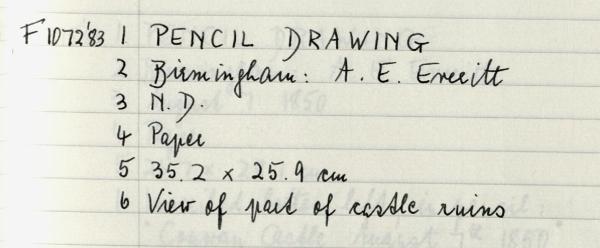 F1072'83 1 PENCIL DRAWING
2 Birmingham: A. E. Everitt
3 N.D.
4 Paper
5 35.2 x 25.9 cm
6 View of part of castle ruins